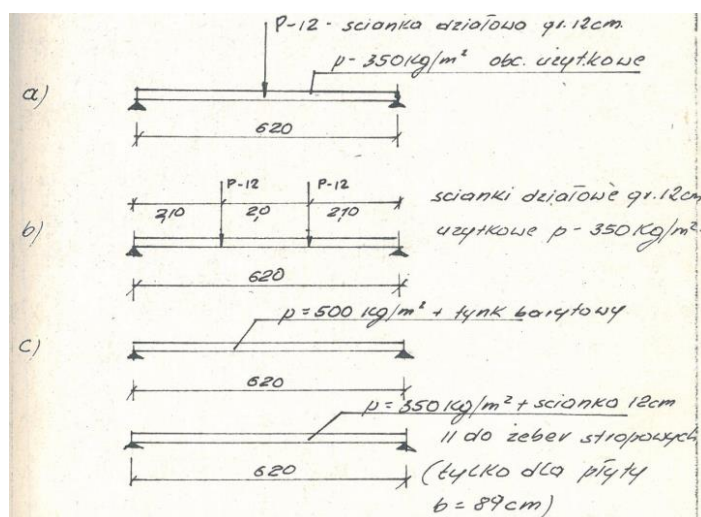 P-12 - scianka działowa gr. 12cm.
p - 350 Kg/m² obc. użytkowe
a)
620
P-12 P-12
2,10 2,0 2,10
scianki działowe gr. 12cm
użytkowe p - 350 Kg/m²
b)
620
p = 500 Kg/m² + tynk barytowy
c)
620
p = 350 Kg/m² + scianka 12cm
II do żeber stropowych
620
(tylko dla płyty
b = 89cm)